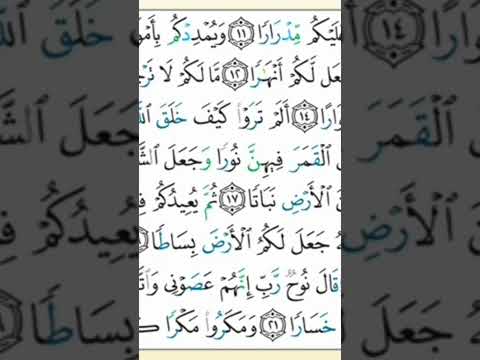 عَلَيْكُم مِّدْرَارًا ١١ وَيُمْدِدْكُم
لَّكُمْ أَنْهَٰرًا ١٢ مَّا لَكُمْ لَا
١٤ أَلَمْ تَرَوْا۟ كَيْفَ خَلَقَ
ٱلْقَمَرَ فِيهِنَّ نُورًا وَجَعَلَ
ٱلْأَرْضِ نَبَاتًا ١٧ ثُمَّ يُعِيدُكُمْ
جَعَلَ لَكُمُ ٱلْأَرْضَ بِسَاطًا
قَالَ نُوحٌ رَّبِّ إِنَّهُمْ عَصَوْنِى
خَسَارًا ٢١ وَمَكَرُوا۟ مَكْرًا